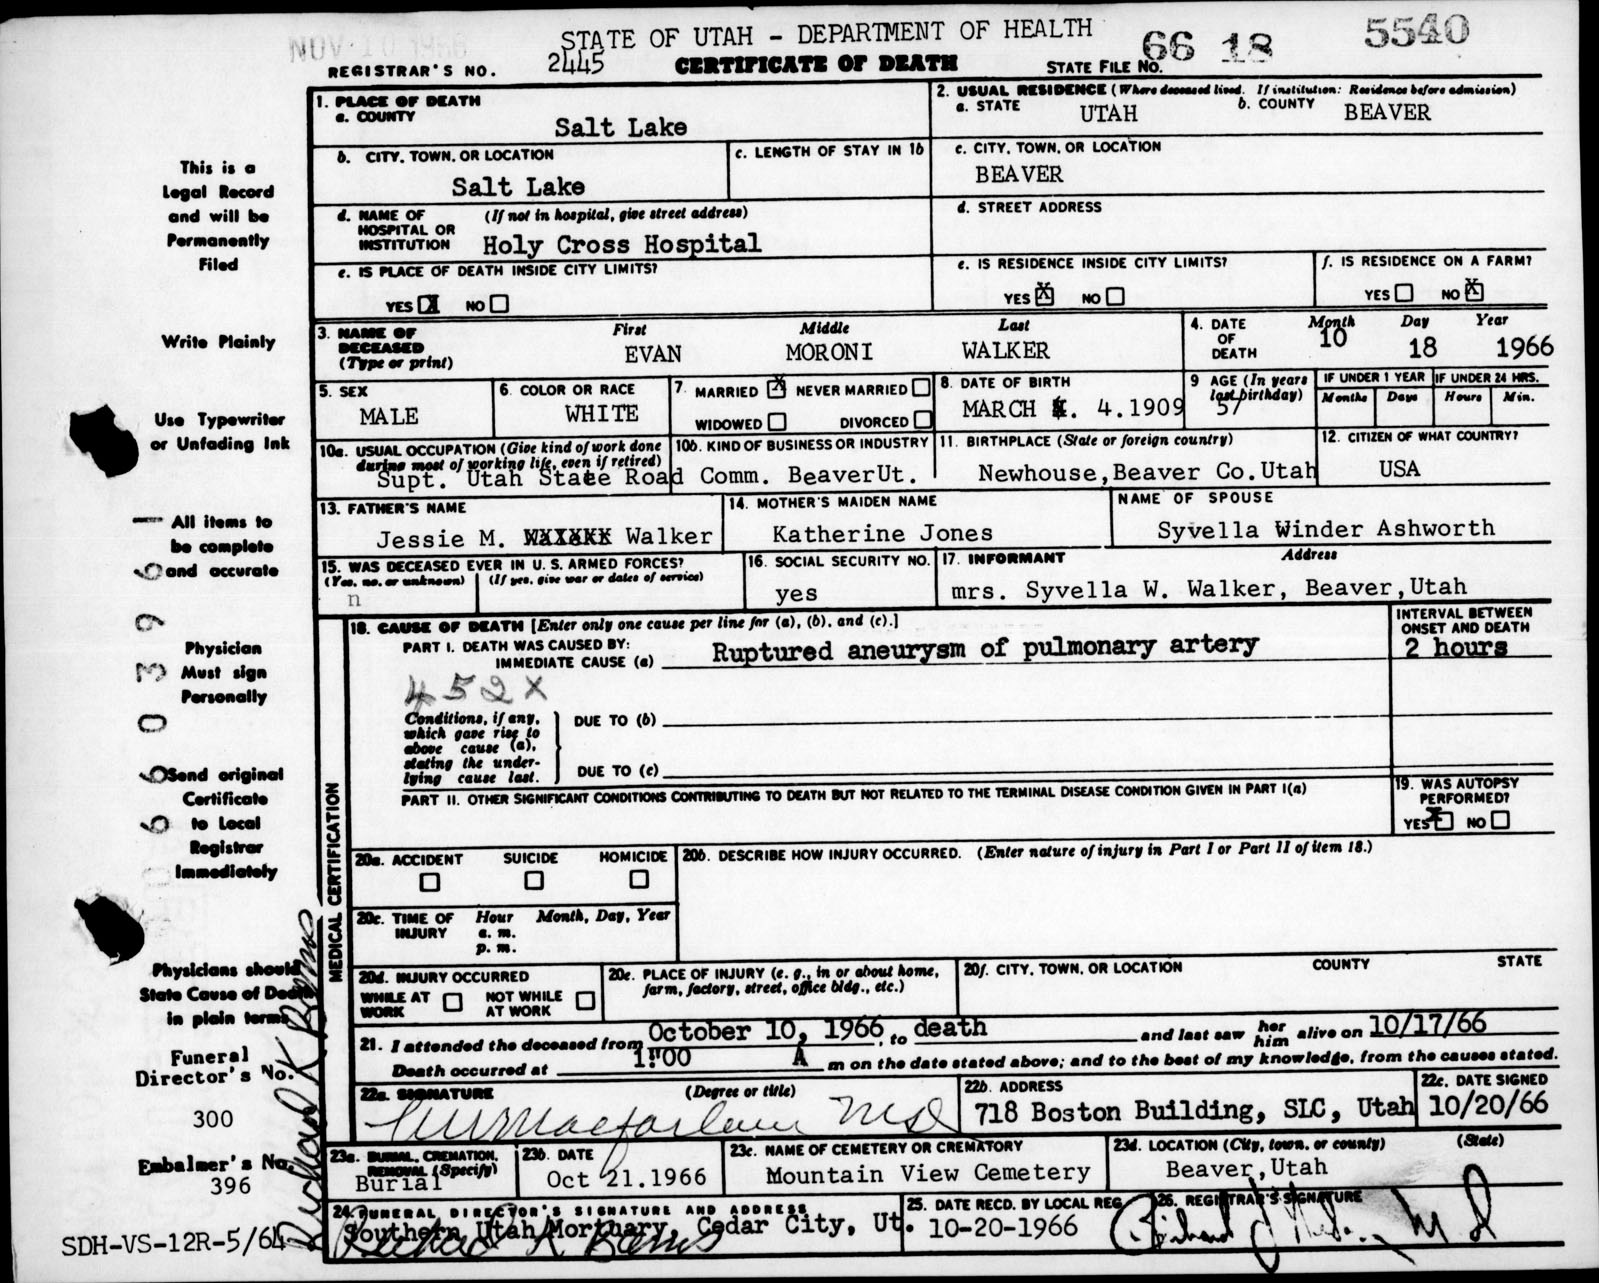 NOV 10 1966
STATE OF UTAH - DEPARTMENT OF HEALTH
66 18 5540
REGISTRAR'S NO. 2445 CERTIFICATE OF DEATH STATE FILE NO.
1. PLACE OF DEATH
a. COUNTY
Salt Lake
2. USUAL RESIDENCE (Where deceased lived. If institution: Residence before admission)
a. STATE UTAH b. COUNTY BEAVER
b. CITY, TOWN, OR LOCATION
Salt Lake
c. LENGTH OF STAY IN 1b
c. CITY, TOWN, OR LOCATION
BEAVER
d. NAME OF HOSPITAL OR INSTITUTION (If not in hospital, give street address)
Holy Cross Hospital
d. STREET ADDRESS
e. IS PLACE OF DEATH INSIDE CITY LIMITS?
YES X NO
e. IS RESIDENCE INSIDE CITY LIMITS?
YES X NO
f. IS RESIDENCE ON A FARM?
YES NO X
3. NAME OF DECEASED (Type or print)
First Middle Last
EVAN MORONI WALKER
4. DATE OF DEATH
Month Day Year
10 18 1966
5. SEX
MALE
6. COLOR OR RACE
WHITE
7. MARRIED X NEVER MARRIED
WIDOWED DIVORCED
8. DATE OF BIRTH
MARCH 4.1909
9 AGE (In years last birthday)
57
IF UNDER 1 YEAR
Months Days
IF UNDER 24 HRS.
Hours Min.
10a. USUAL OCCUPATION (Give kind of work done during most of working life, even if retired)
10b. KIND OF BUSINESS OR INDUSTRY
Supt. Utah State Road Comm. BeaverUt.
11. BIRTHPLACE (State or foreign country)
Newhouse,Beaver Co.Utah
12. CITIZEN OF WHAT COUNTRY?
USA
13. FATHER'S NAME
Jessie M. Walker
14. MOTHER'S MAIDEN NAME
Katherine Jones
NAME OF SPOUSE
Syvella Winder Ashworth
15. WAS DECEASED EVER IN U. S. ARMED FORCES?
(Yes, no, or unknown) (If yes, give war or dates of service)
n
16. SOCIAL SECURITY NO.
yes
17. INFORMANT Address
mrs. Syvella W. Walker, Beaver,Utah
MEDICAL CERTIFICATION
18. CAUSE OF DEATH [Enter only one cause per line for (a), (b), and (c).]
PART I. DEATH WAS CAUSED BY:
IMMEDIATE CAUSE (a) Ruptured aneurysm of pulmonary artery
INTERVAL BETWEEN ONSET AND DEATH
2 hours
452X
Conditions, if any, which gave rise to above cause (a), stating the underlying cause last.
DUE TO (b)
DUE TO (c)
PART II. OTHER SIGNIFICANT CONDITIONS CONTRIBUTING TO DEATH BUT NOT RELATED TO THE TERMINAL DISEASE CONDITION GIVEN IN PART I(a)
19. WAS AUTOPSY PERFORMED?
YES X NO
20a. ACCIDENT SUICIDE HOMICIDE
20b. DESCRIBE HOW INJURY OCCURRED. (Enter nature of injury in Part I or Part II of item 18.)
20c. TIME OF INJURY Hour Month, Day, Year
a. m.
p. m.
20d. INJURY OCCURRED
WHILE AT WORK NOT WHILE AT WORK
20e. PLACE OF INJURY (e. g., in or about home, farm, factory, street, office bldg., etc.)
20f. CITY, TOWN, OR LOCATION COUNTY STATE
21. I attended the deceased from October 10, 1966, to death and last saw her him alive on 10/17/66
Death occurred at 1:00 A m on the date stated above; and to the best of my knowledge, from the causes stated.
22a. SIGNATURE (Degree or title)
Macfarlane MD
22b. ADDRESS
718 Boston Building, SLC, Utah
22c. DATE SIGNED
10/20/66
23a. BURIAL, CREMATION, REMOVAL (Specify)
Burial
23b. DATE
Oct 21.1966
23c. NAME OF CEMETERY OR CREMATORY
Mountain View Cemetery
23d. LOCATION (City, town, or county) (State)
Beaver,Utah
24. FUNERAL DIRECTOR'S SIGNATURE AND ADDRESS
Southern Utah Mortuary, Cedar City, Ut.
25. DATE RECD. BY LOCAL REG.
10-20-1966
26. REGISTRAR'S SIGNATURE
M D
This is a
Legal Record
and will be
Permanently
Filed
Write Plainly
Use Typewriter
or Unfading Ink
All items to
be complete
and accurate
Physician
Must sign
Personally
Send original
Certificate
to Local
Registrar
Immediately
Physicians should
State Cause of Death
in plain terms
Funeral
Director's No.
300
Embalmer's No.
396
Richard K
SDH-VS-12R-5/64